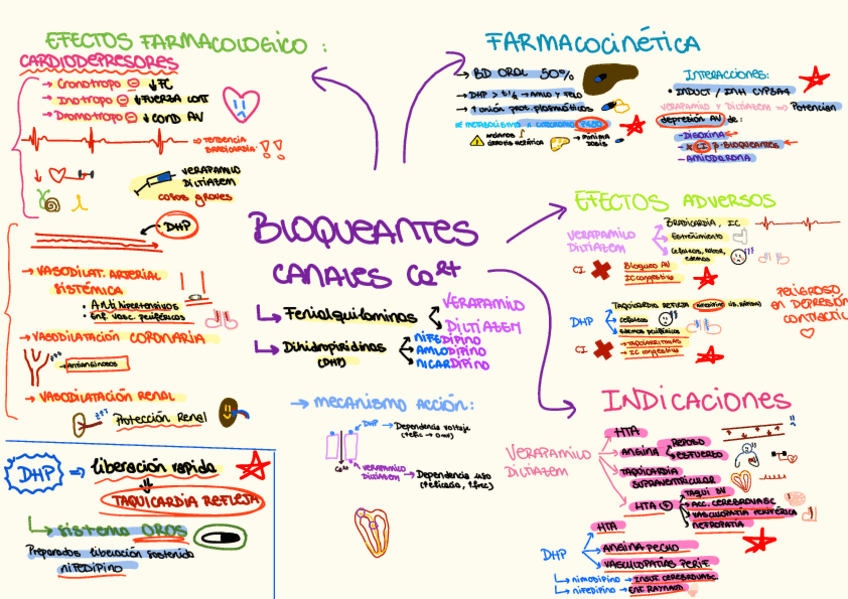 EFECTOS FARMACOLOGICO :
CARDIODEPRESORES
→ Cronotropo ⊖ ↓FC
→ Inotropo ⊖ ↓FUERZA CONT
→ Dromotropo ⊖ ↓COND AV
→ TENDENCIA
BRADICARDIA
VERAPAMILO
DILTIAZEM
casos graves
DHP
→ VASODILAT. ARTERIAL
SISTÉMICA
• Antihipertensivos
• Enf. vasc. periféricos
→ VASODILATACIÓN CORONARIA
→ Antianginosos
→ VASODILATACIÓN RENAL
Protección Renal
DHP ⇒ liberación rapida
TAQUICARDIA REFLEJA
sistema OROS
Preparados liberación sostenida
nifedipino
BLOQUEANTES
CANALES Ca2+
Fenilalquilaminas
VERAPAMILO
DILTIAZEM
Dihidropiridinas
(DHP)
NIFEDIPINO
AMLODIPINO
NICARDIPINO
→ MECANISMO ACCIÓN:
DHP → Dependencia voltaje
Ca2+
VERAPAMILO
DILTIAZEM → Dependencia uso
FARMACOCINÉTICA
→ BD ORAL 50%
→ DHP > t½ → AMLO Y FELO
→ ↑ unión prot. plasmáticas
* METABOLISMO x CITOCROMO P450
ANCIANOS
CIRROSIS HEPÁTICA
→ MÍNIMA
DOSIS
INTERACCIONES:
• INDUCT / INH CYP3A4
VERAPAMILO Y DILTIAZEM → Potencian
depresión AV de:
- DIGOXINA
- * CI β-BLOQUEANTES
- AMIODARONA
EFECTOS ADVERSOS
VERAPAMILO
DILTIAZEM
BRADICARDIA, IC
Estreñimiento
Cefaleas, rubor,
edemas
CI
Bloqueo AV
IC congestiva
DHP
TAQUICARDIA REFLEJA (nifedipino
Cefaleas
Edemas periféricos
CI
→ TAQUIARRITMIAS
→ IC congestiva
PELIGROSO
EN DEPRESIÓN
CONTRÁCTIL
INDICACIONES
VERAPAMILO
DILTIAZEM
HTA
ANGINA
REPOSO
ESFUERZO
TAQUICARDIA
SUPRAVENTRICULAR
HTA ⊕
TAQUI SV
ACC. CEREBROVASC
VASCULOPATIA PERIFÉRICA
NEFROPATIA
DHP
HTA
ANGINA PECHO
VASCULOPATÍAS PERIF.
nimodipino → INSUF. CEREBROVASC.
nifedipino → ENF. RAYNAUD